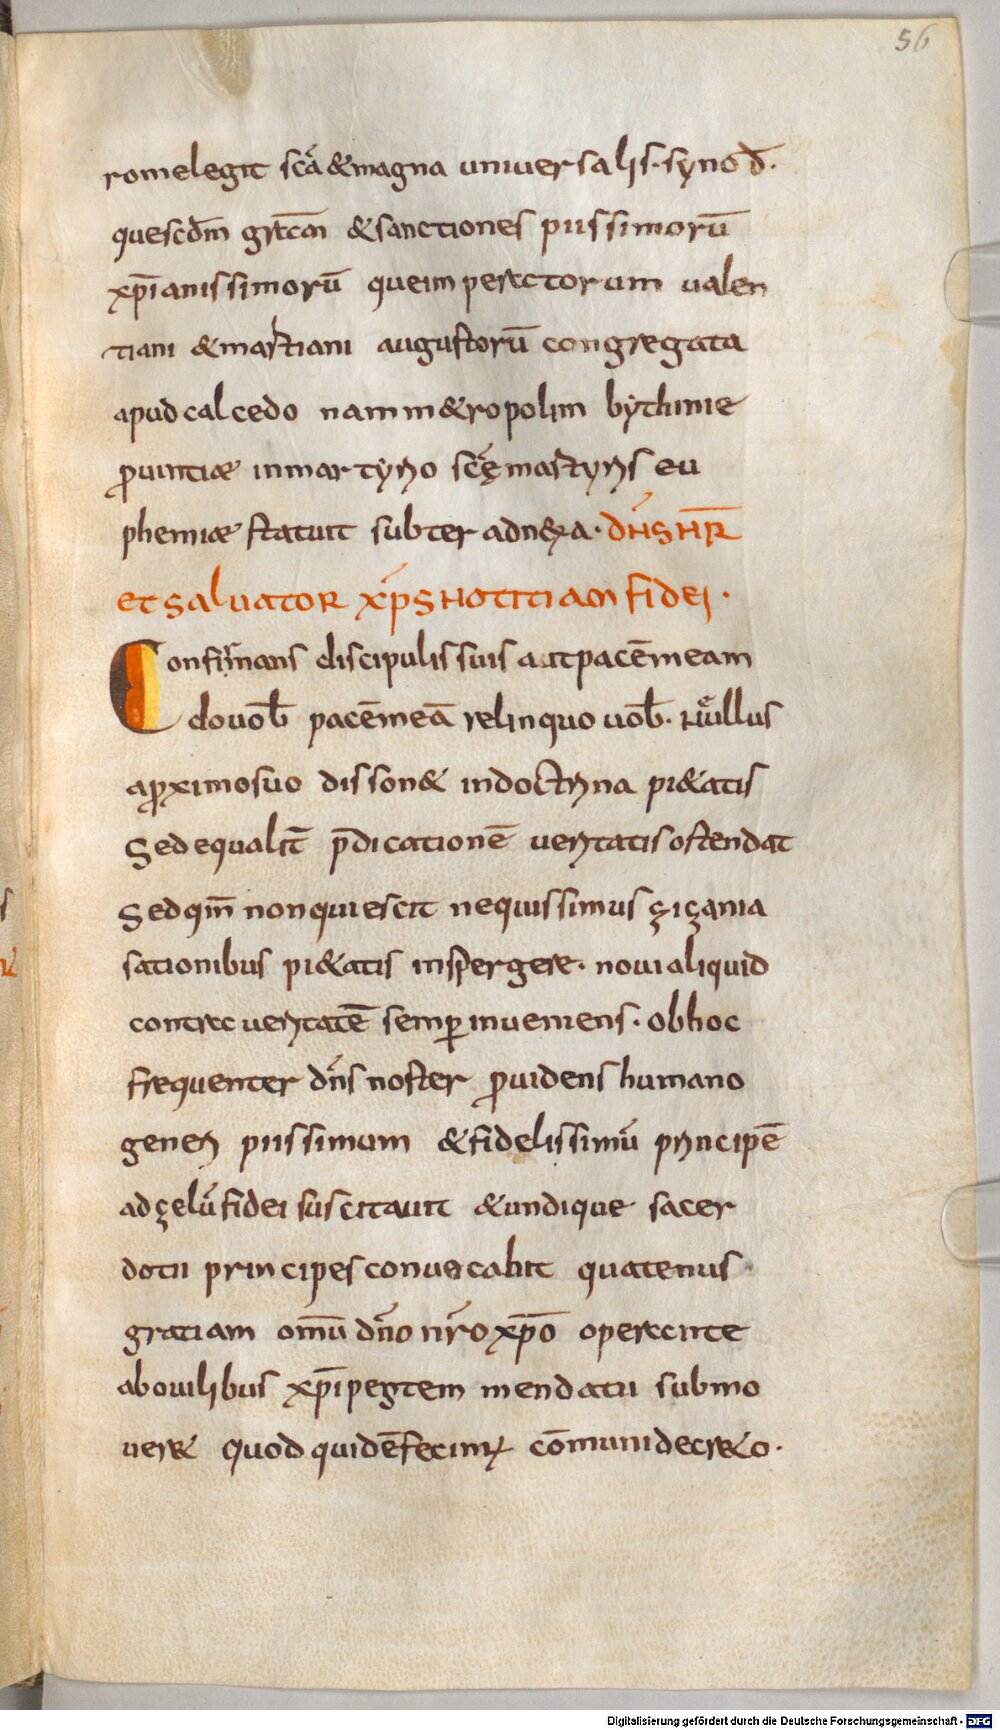 56
romelegit scā &magna uniuersalis·synod̄·
quescdm̄ gratiam &sanctiones piissimorū
xp̄ianissimorū queimperatorum ualen
tiani &martiani augustorū congregata
apudcalcedo nam m&ropolim bythinie
prouintiæ inmartyrio scę̄ martyris eu
phemiæ statuit subter adn&xa· dn̄s nr̄
et saluator xp̄s notitiam fidei·
Confirmans discipulis suis ait pacēmeam
do uob̄ pacēmeā relinquo uob̄· ut nullus
aproximosuo disson& indoctrina pi&atis
Sedequalit̄ p̄dicationē ueritatis ostendat
Sedqm̄ nonquiescit nequissimus zizania
sationibus pi&atis inspergere· noui aliquid
contra ueritatē semper inueniens· obhoc
frequenter dn̄s noster prouidens humano
generi piissimum &fidelissimū principē
adzelū fidei suscitauit &undique sacer
dotii principes conuocabit quatenus
gratiam omū dn̄o nr̄o xp̄o operante
abouilibus xp̄i pestem mendatii submo
uer& quod quidē fecimus cōmuni decr&o·
Digitalisierung gefördert durch die Deutsche Forschungsgemeinschaft - DFG